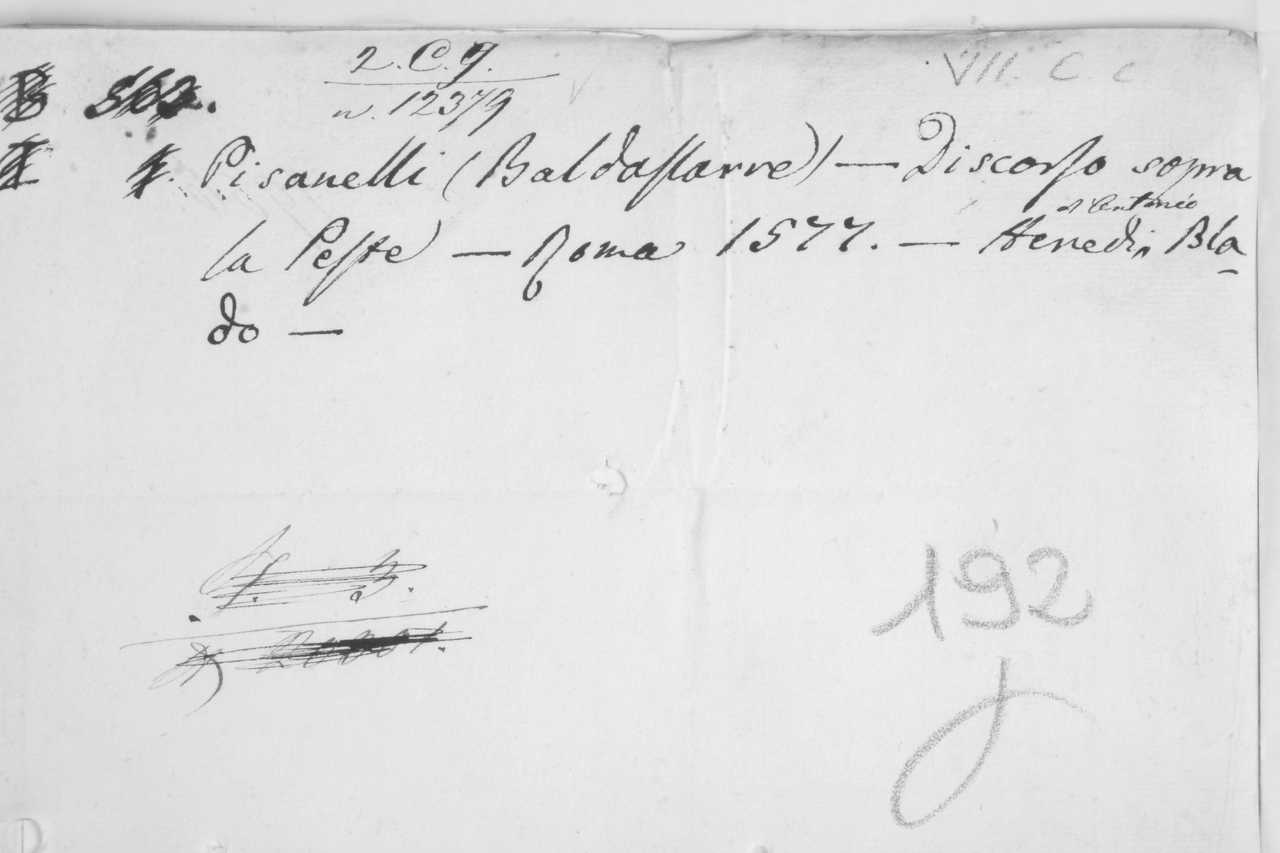 2. C. 7.
VII. C. c
n. 12379
Pisanelli (Baldassarre) — Discorso sopra
la Peste — Roma 1577. — Heredi d'Antonio Bla
do —
192